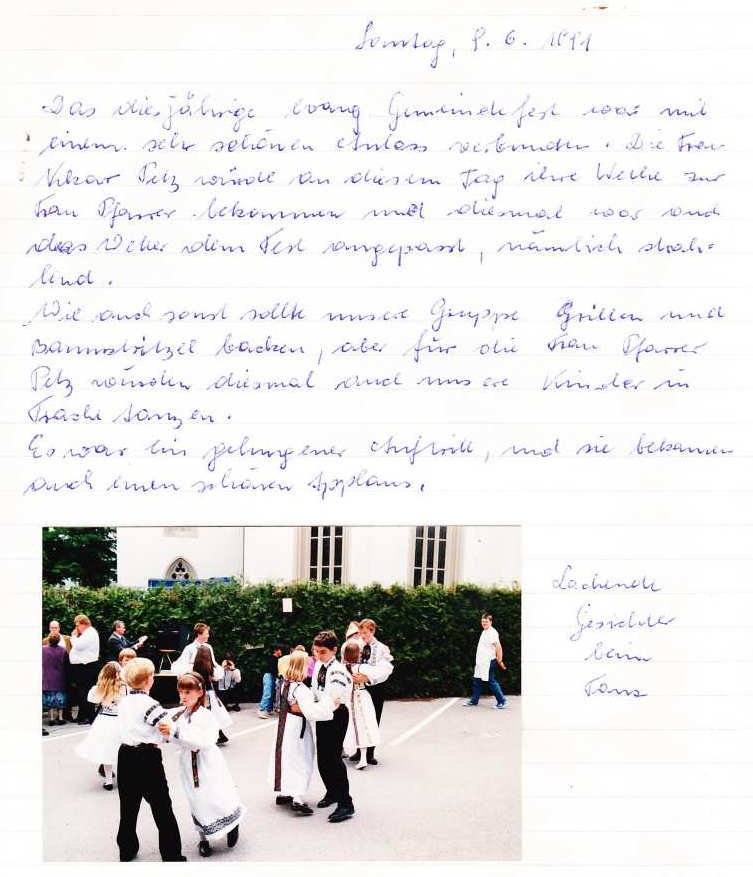 Sonntag, 9. 6. 1991
Das diesjährige evang. Gemeindefest war mit
einem sehr schönen Anlass verbunden. Die Frau
Vikar Petz würde an diesem Tag ihre Weihe zur
Frau Pfarrer bekommen und diesmal war auch
das Wetter dem Fest angepasst, nämlich strah-
lend.
Wie auch sonst sollte unsere Gruppe Grillen und
Baumstritzel backen, aber für die Frau Pfarrer
Petz würden diesmal auch unsere Kinder in
Tracht tanzen.
Es war ein gelungener Auftritt, und sie bekamen
auch einen schönen Applaus.
Lachende
Gesichter
beim
Tanz